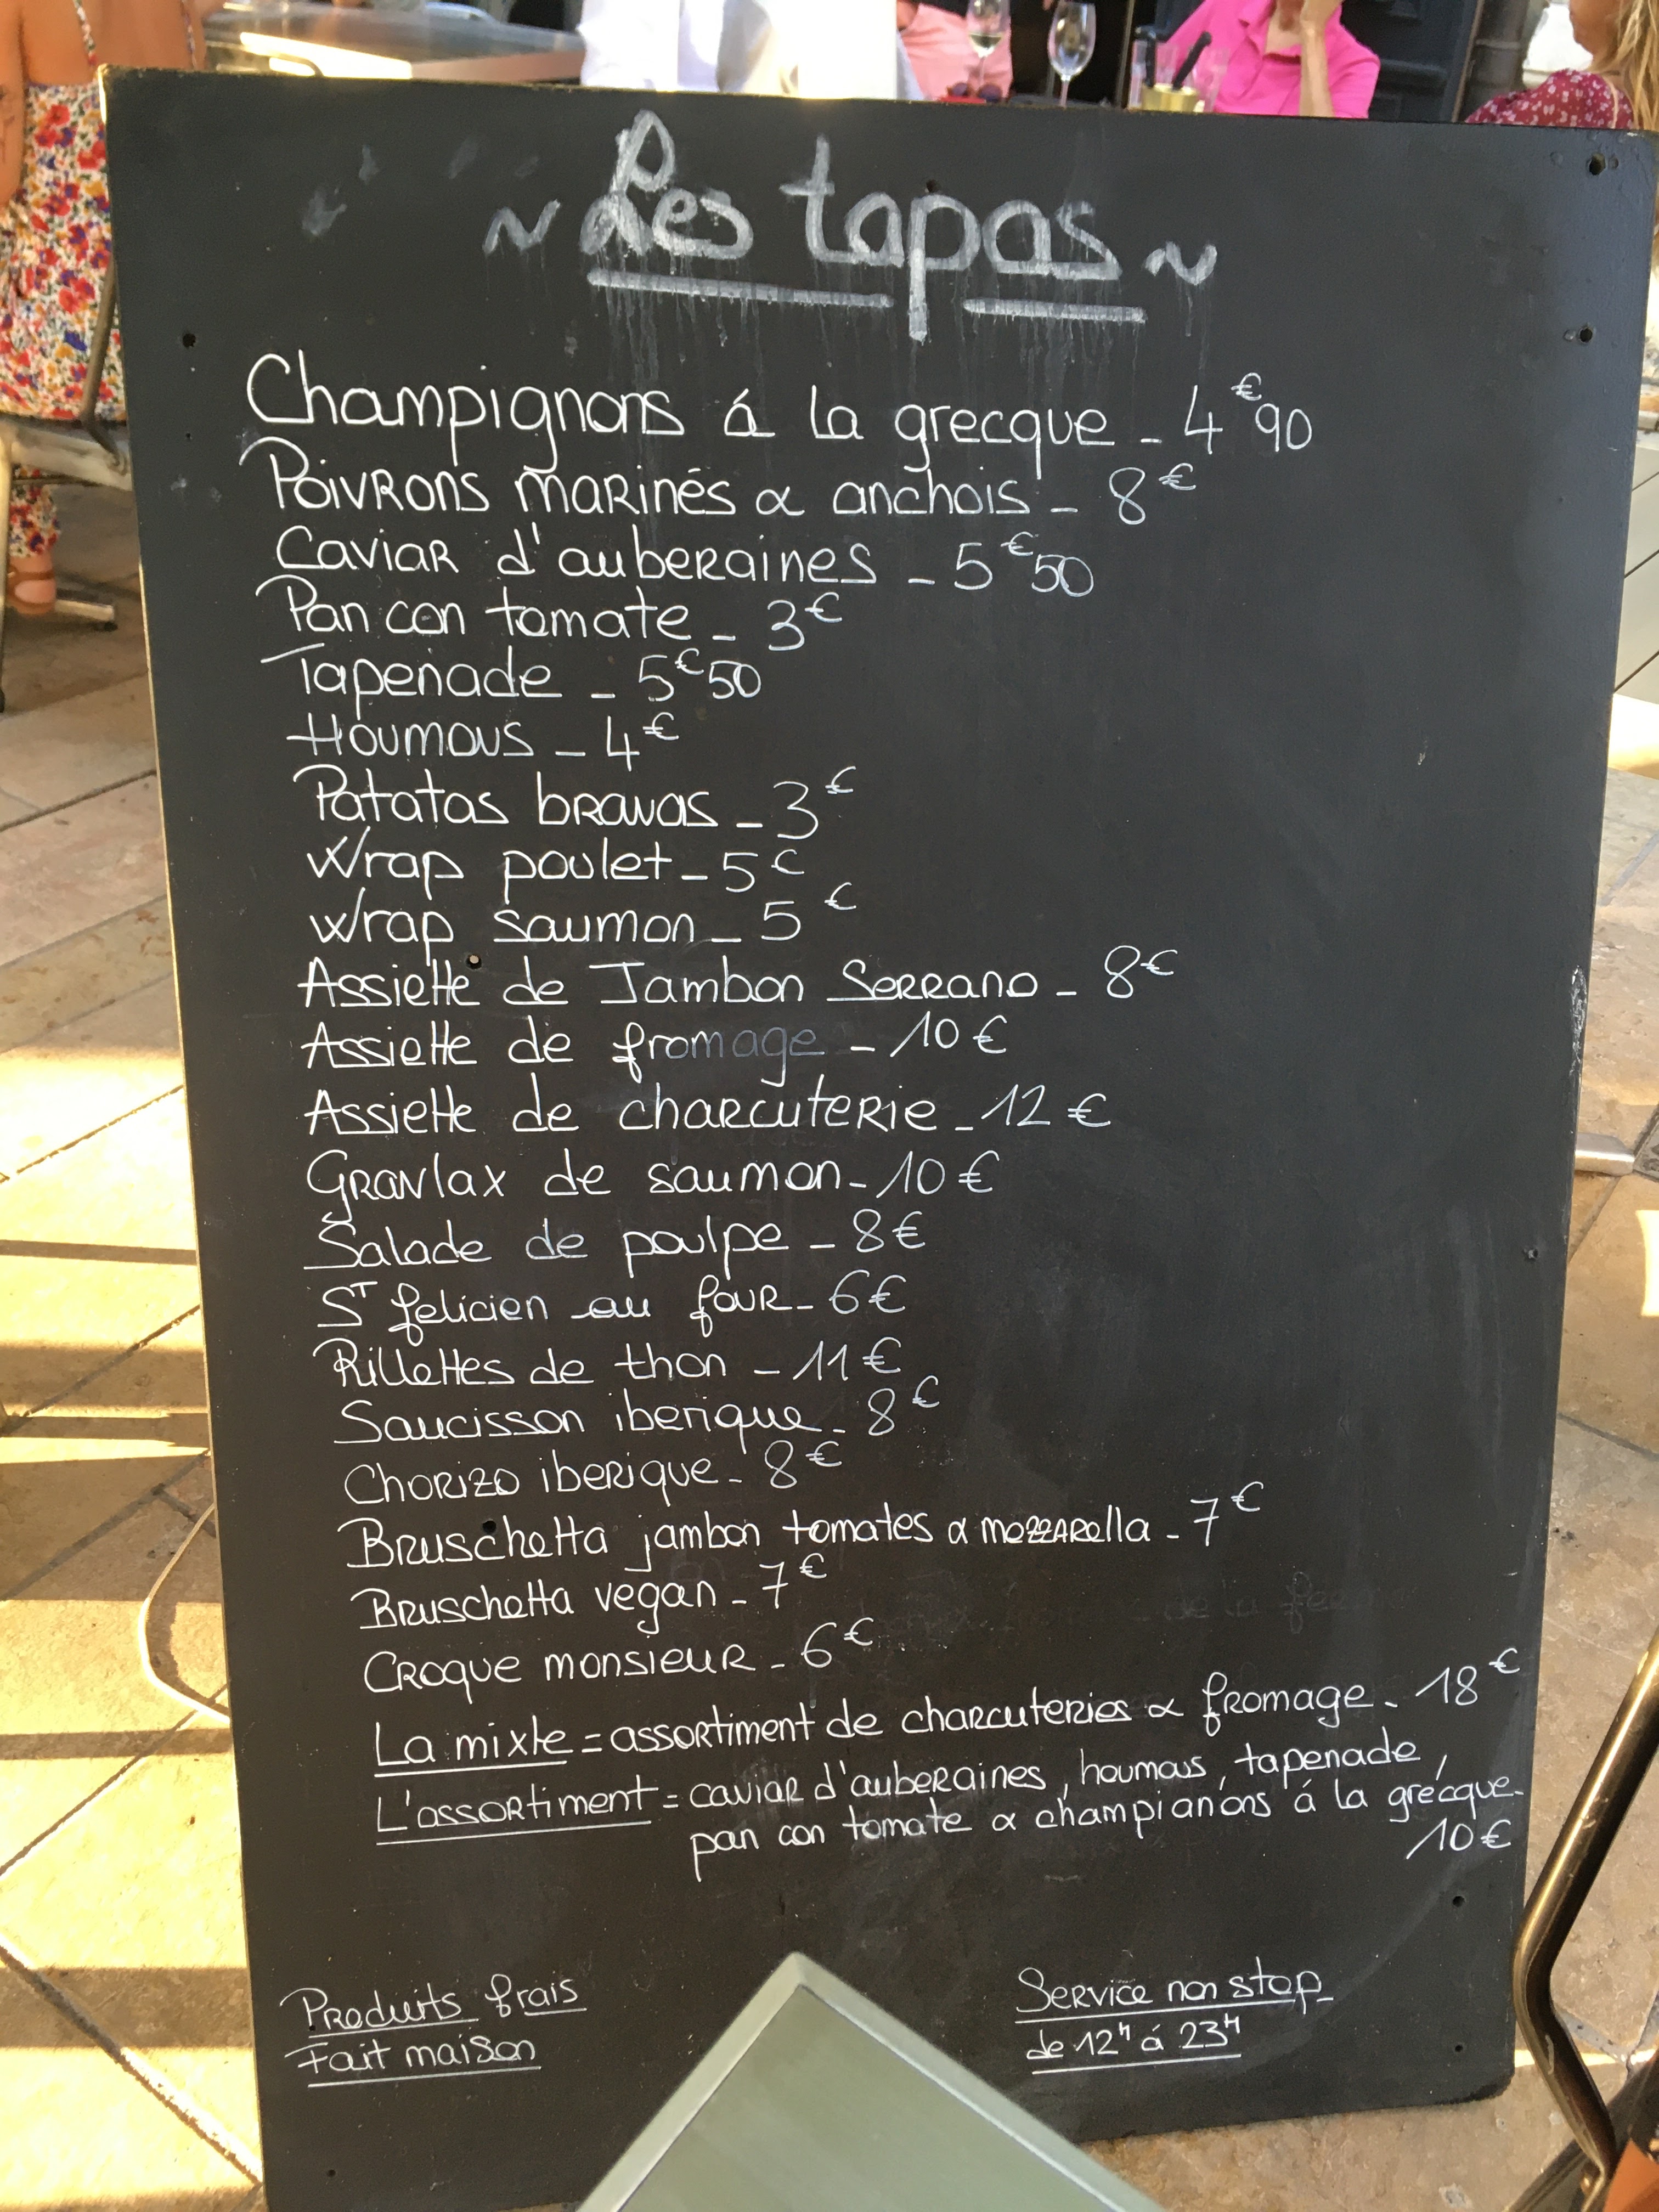 ~ Les tapas ~
Champignons á la grecque - 4€90
Poivrons marinés & anchois - 8€
Caviar d'auberaines - 5€50
Pan con tomate - 3€
Tapenade - 5€50
Houmous - 4€
Patatas bravas - 3€
Wrap poulet - 5€
Wrap saumon - 5€
Assiette de Jambon Serrano - 8€
Assiette de fromage - 10€
Assiette de charcuterie - 12€
Gravlax de saumon - 10€
Salade de poulpe - 8€
ST felicien au four - 6€
Rillettes de thon - 11€
Saucisson iberique - 8€
Chorizo iberique - 8€
Bruschetta jambon tomates & mozzarella - 7€
Bruschetta vegan - 7€
Croque monsieur - 6€
La mixte = assortiment de charcuteries & fromage - 18€
L'assortiment = caviar d'auberaines, houmous, tapenade,
pan con tomate & champianons á la grècque -
10€
Produits frais
Fait maison
Service non stop
de 12H á 23H